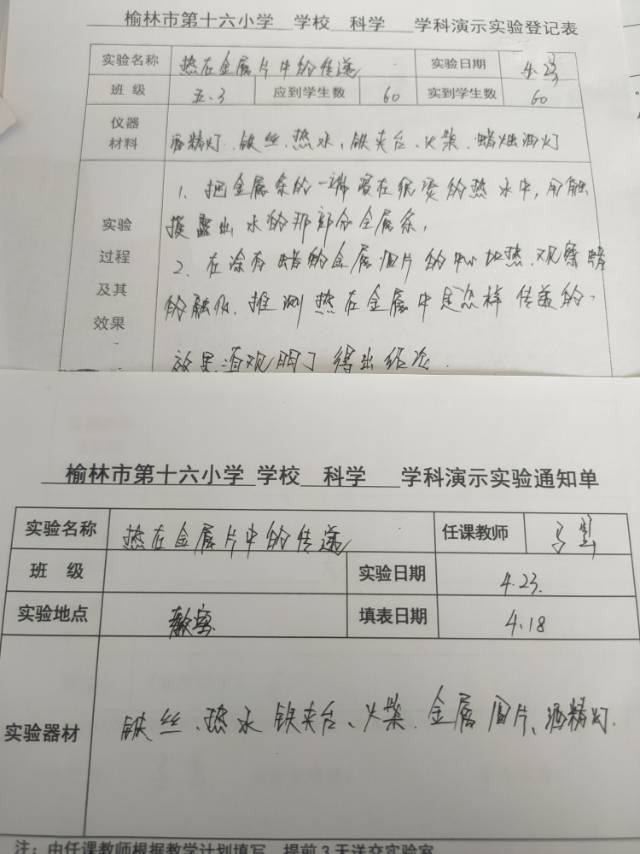 榆林市第十六小学 学校 科学 学科演示实验登记表
实验名称 热在金属片中的传递 实验日期 4.23
班 级 五.3 应到学生数 60 实到学生数 60
仪器材料 酒精灯、铁丝、热水、铁夹台、火柴、蜡烛酒灯
实验过程及其效果
1、把金属条的一端浸在很烫的热水中,用触
摸露出水的那部分金属条,
2、在涂有蜡的金属圆片的中心加热,观察蜡
的融化,推测热在金属中是怎样传递的.
效果:直观明了 得出结论.
榆林市第十六小学 学校 科学 学科演示实验通知单
实验名称 热在金属片中的传递 任课教师
班 级 实验日期 4.23.
实验地点 教室 填表日期 4.18
实验器材 铁丝、热水 铁夹台、火柴、金属圆片、酒精灯.
注:由任课教师根据教学计划填写,提前3天送交实验室